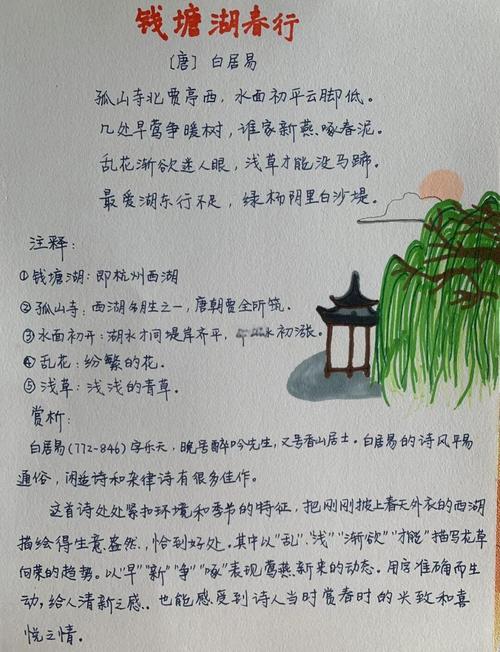 钱塘湖春行
〔唐〕白居易
孤山寺北贾亭西，水面初平云脚低。
几处早莺争暖树，谁家新燕啄春泥。
乱花渐欲迷人眼，浅草才能没马蹄。
最爱湖东行不足，绿杨阴里白沙堤。
注释：
①钱塘湖：即杭州西湖
②孤山寺：西湖名胜之一，唐朝贾全所筑。
③水面初开：湖水才同堤岸齐平，水初涨。
④乱花：纷繁的花。
⑤浅草：浅浅的青草。
赏析：
白居易(772-846)字乐天，晚号醉吟先生，又号香山居士。白居易的诗风平易
通俗，闲适诗和杂律诗有很多佳作。
这首诗处处紧扣环境和季节的特征，把刚刚披上春天外衣的西湖
描绘得生意盎然，恰到好处。其中以"乱""浅""渐欲""才能"描写花草
向荣的趋势。以"早""新""争""啄"表现莺燕新来的动态。用字准确而生
动，给人清新之感。也能感受到诗人当时赏春时的兴致和喜
悦之情。